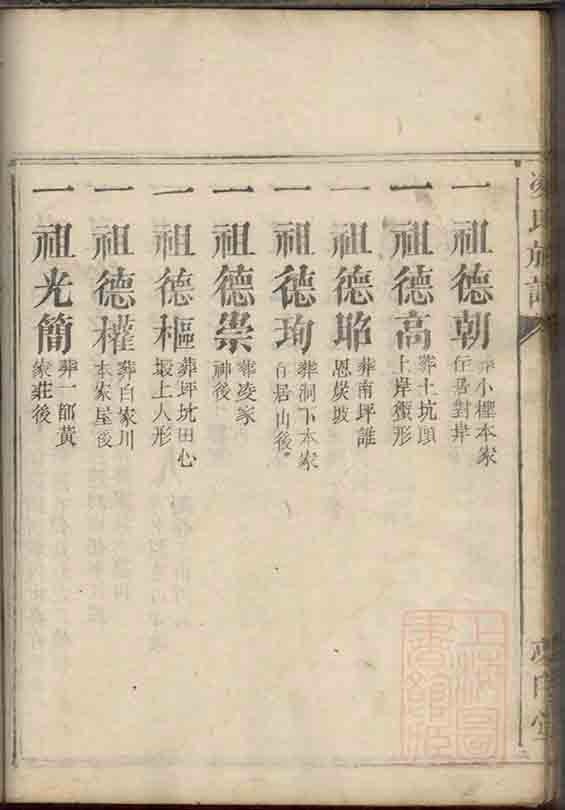 一祖德朝 葬小檉本家
住居對岸
一祖德高 葬土坑頭
上岸蟹形
一祖德昭 葬南坪誰
恩炭坡
一祖德珣 葬洞下本家
住居山後
一祖德崇 葬凌家
神後
一祖德樞 葬坪坑田心
塅上人形
一祖德權 葬白家川
本家屋後
一祖光簡 葬一都黃
家莊後
凌氏族譜
上海圖
書館藏